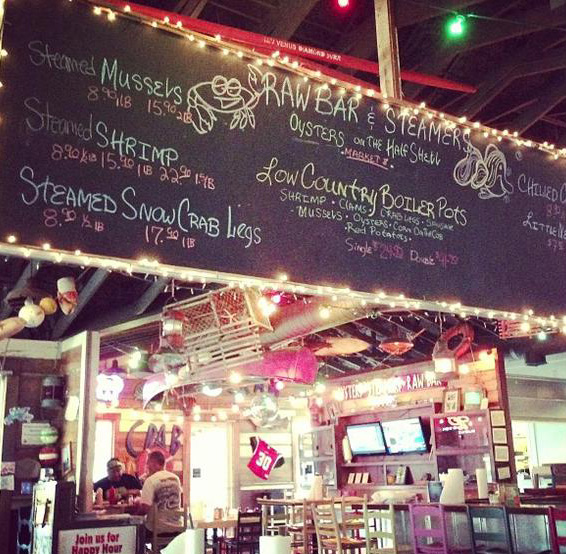 Steamed MUSSELS
8.90 LB 15.90 2LB
Steamed SHRIMP
8.90 ½LB 15.90 LB 22.90
STEAMED SNOW CRAB LEGS
8.90 ½LB 17.90 LB
RAW BAR & STEAMERS
OYSTERS ON THE HALF SHELL
MARKET $
LOW COUNTRY BOILER POTS
SHRIMP · CLAMS · CRAB LEGS · SAUSAGE
MUSSELS · OYSTERS · CORN ON THE COB
· RED POTATOES ·
Single Double
CHILLED
RAW BAR
CRAB
30
Join us for
Happy Hour